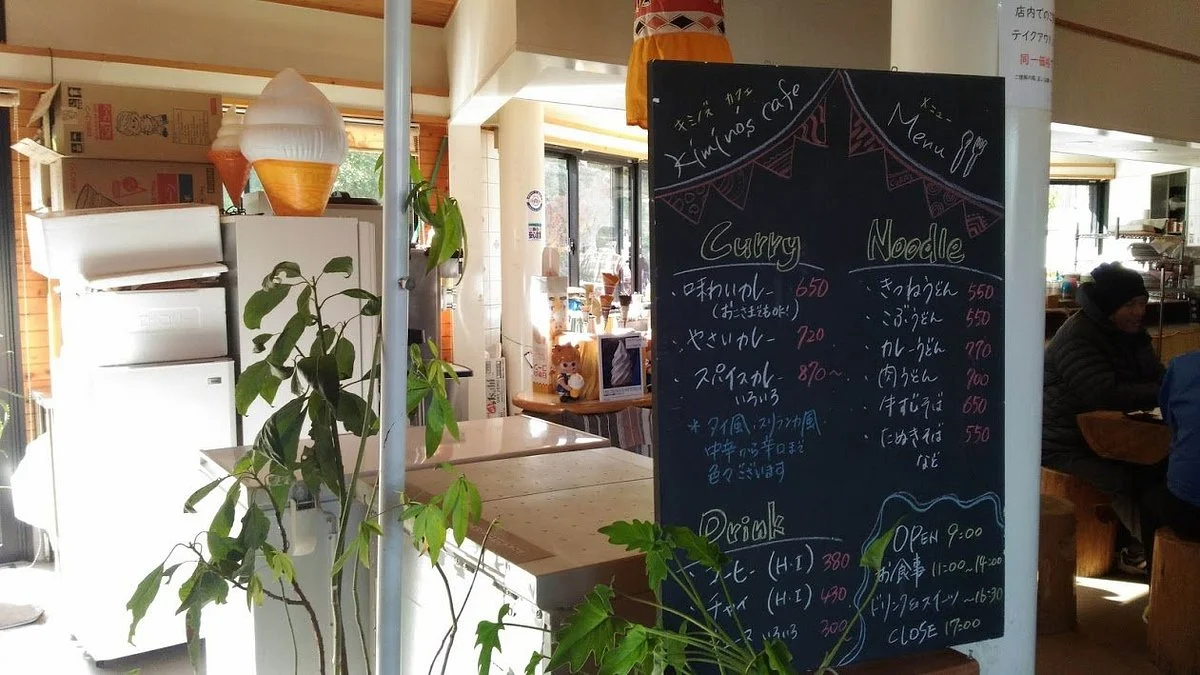 キミノズ カフェ
kimino's cafe
メニュー
Menu
Curry
・味わいカレー 650
(おこさまもOK!)
・やさいカレー 720
・スパイスカレー 870〜
いろいろ
＊タイ風、スリランカ風
中辛から辛口まで
色々ございます
Noodle
・きつねうどん 550
・こぶうどん 550
・カレーうどん 770
・肉うどん 700
・牛すじそば 650
・たぬきそば 550
など
Drink
コーヒー (H・I) 380
・チャイ (H・I) 430
ース いろいろ 300
OPEN 9:00
お食事 11:00〜14:00
ドリンク&スイーツ 〜16:30
CLOSE 17:00
店内での
テイクアウ
同一価格